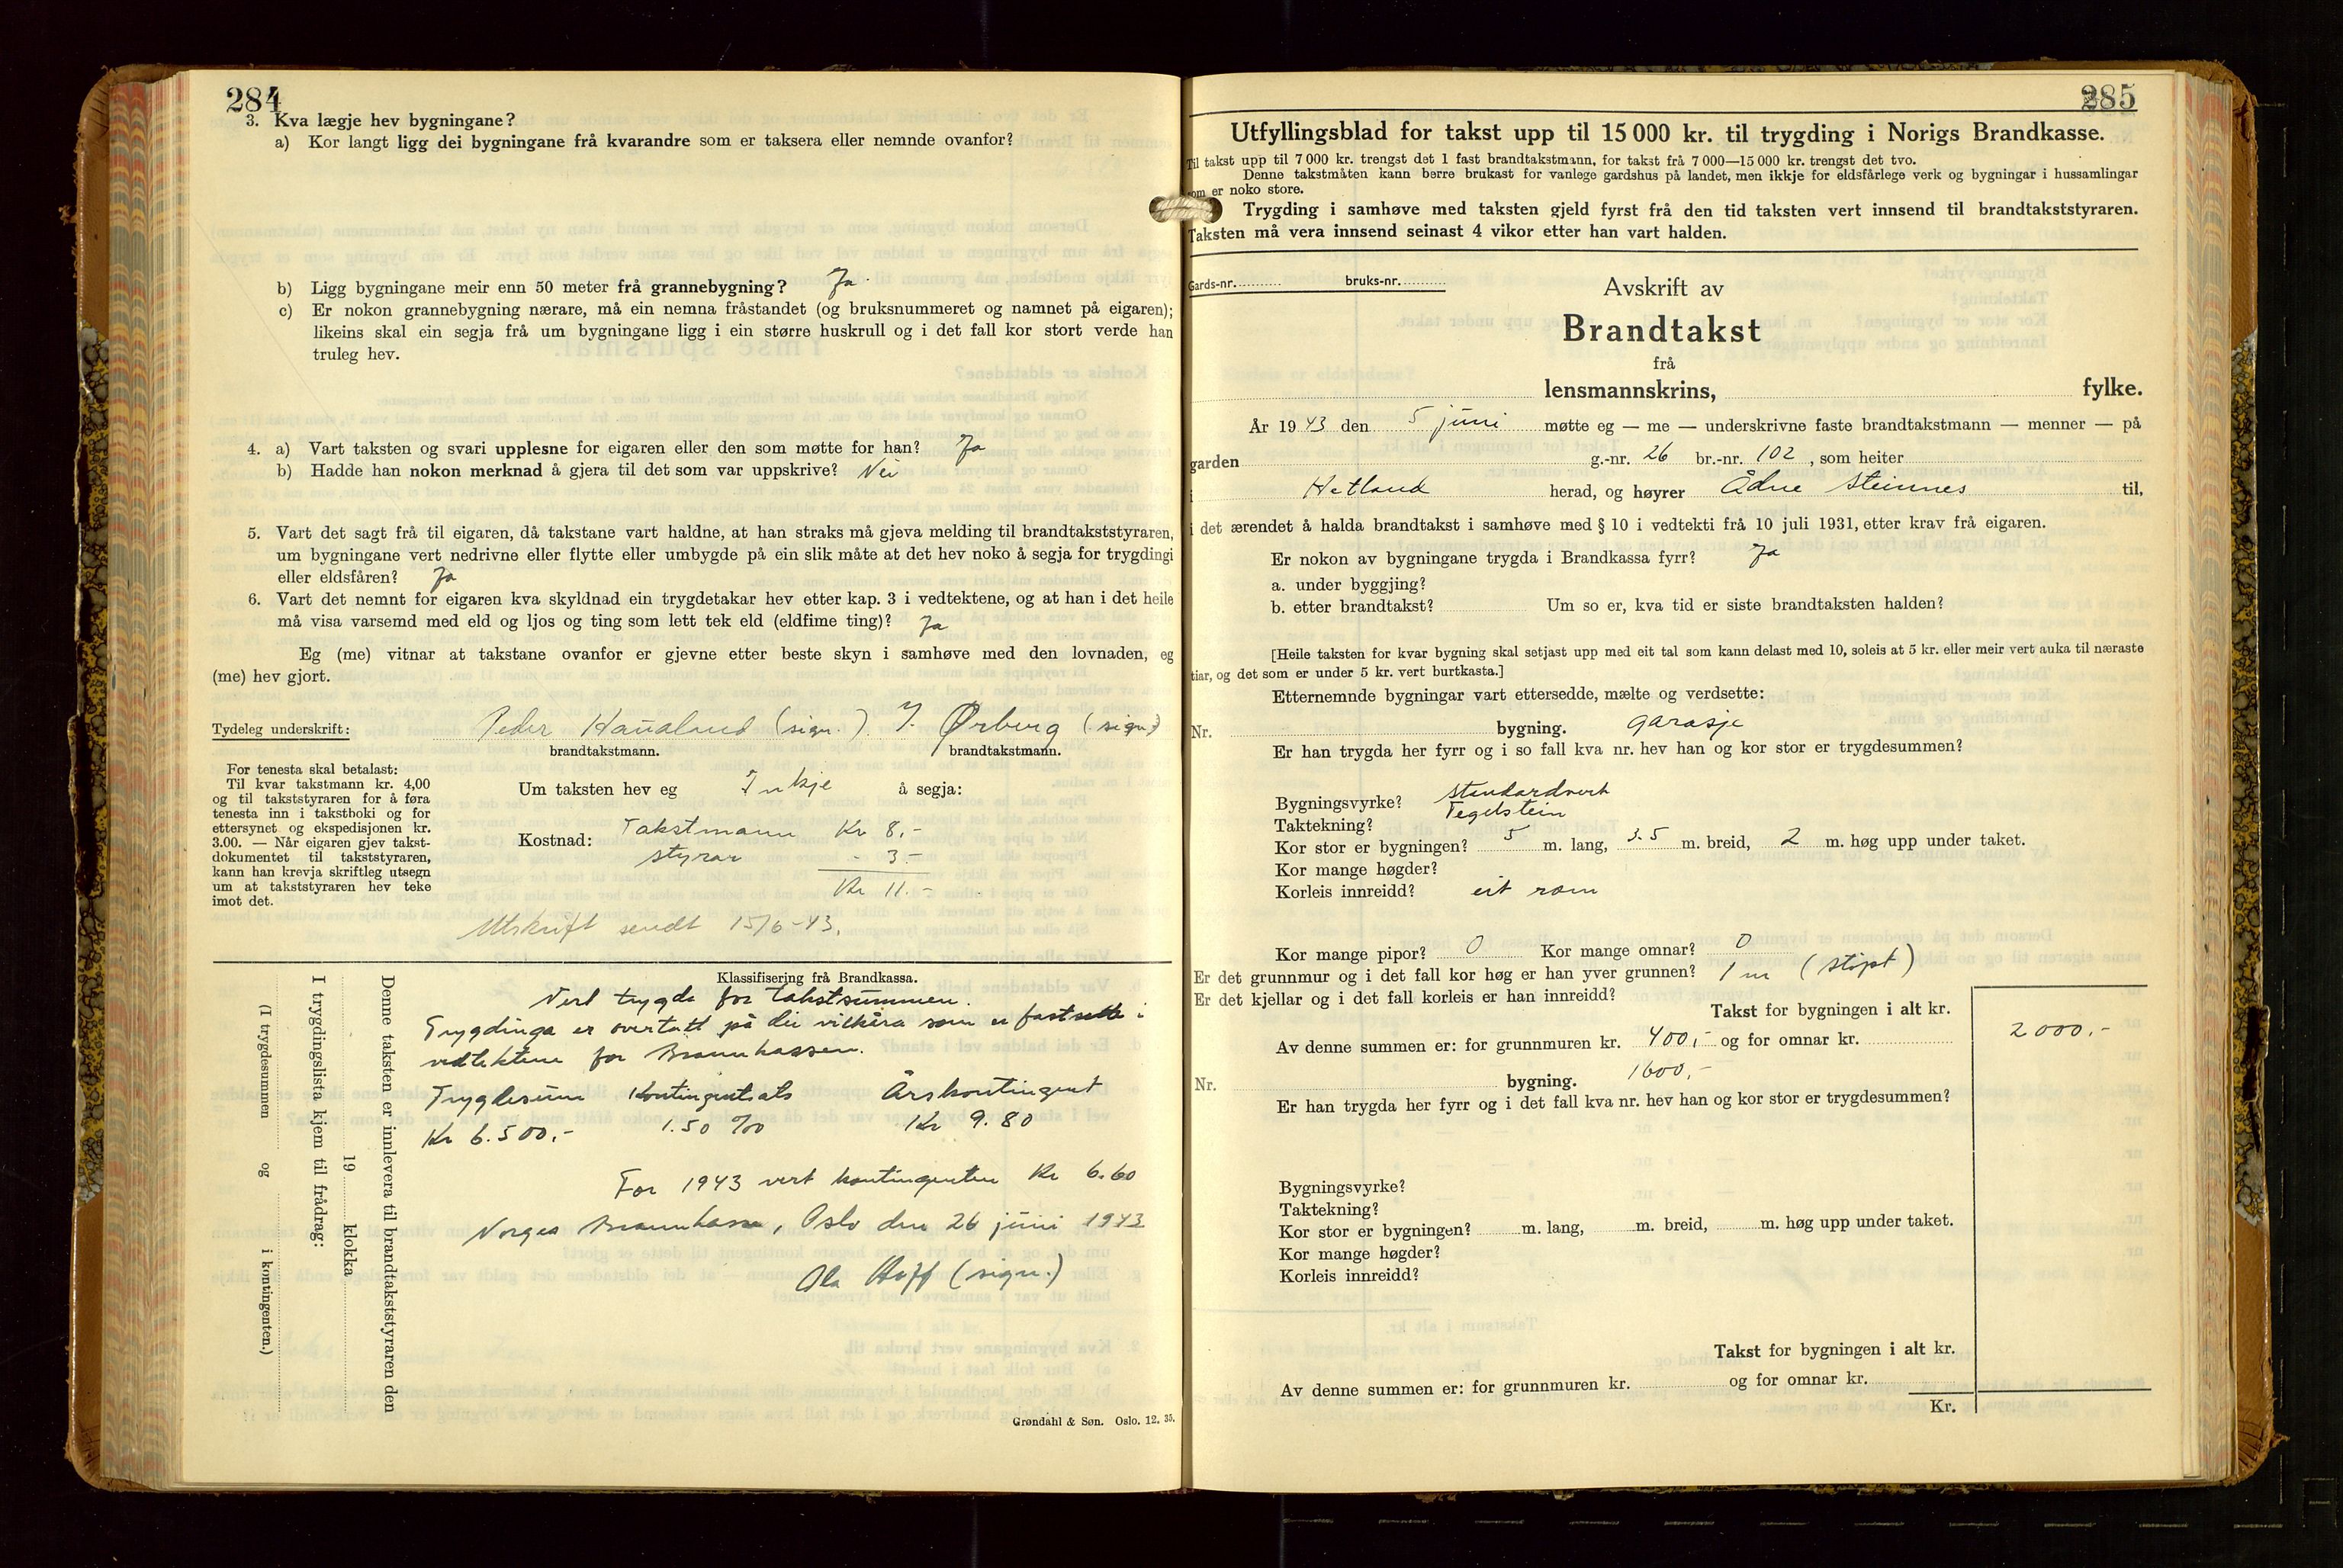 284
3. Kva lægje hev bygningane?
a) Kor langt ligg dei bygningane frå kvarandre som er taksera eller nemnde ovanfor?
b) Ligg bygningane meir enn 50 meter frå grannebygning? Ja
c) Er nokon grannebygning nærare, må ein nemna fråstandet (og bruksnummeret og namnet på eigaren);
likeins skal ein segja frå um bygningane ligg i ein større huskrull og i det fall kor stort verde han
truleg hev.
4. a) Vart taksten og svari upplesne for eigaren eller den som møtte for han? Ja
b) Hadde han nokon merknad å gjera til det som var uppskrive? Nei
5. Vart det sagt frå til eigaren, då takstane vart haldne, at han straks må gjeva melding til brandtakststyraren,
um bygningane vert nedrivne eller flytte eller umbygde på ein slik måte at det hev noko å segja for trygdingi
eller eldsfåren? Ja
6. Vart det nemnt for eigaren kva skyldnad ein trygdetakar hev etter kap. 3 i vedtektene, og at han i det heile
må visa varsemd med eld og ljos og ting som lett tek eld (eldfime ting)? Ja
Eg (me) vitnar at takstane ovanfor er gjevne etter beste skyn i samhøve med den lovnaden, eg
(me) hev gjort.
Tydeleg underskrift: Peder Haualand (sign.) J. Ørberg (sign)
brandtakstmann. brandtakstmann.
For tenesta skal betalast:
Til kvar takstmann kr. 4,00
og til takststyraren for å føra
tenesta inn i takstboki og for
ettersynet og ekspedisjonen kr.
3.00. — Når eigaren gjev takst-
dokumentet til takststyraren,
kann han krevja skriftleg utsegn
um at takststyraren hev teke
imot det.
Um taksten hev eg Inkje å segja:
Kostnad: Takstmann Kr 8.-
styrar - 3.-
Kr 11.-
Utskrift sendt 15/6-43.
Klassifisering frå Brandkassa.
Vert trygda for takstsummen.
Trygdinga er overtatt på dei vilkåra som er fastsette i
vedtektene for Brannkassen.
Trygdesum Kontingentsats Årskontingent
Kr 6.500.- 1.50 ‰ Kr 9.80
For 1943 vert kontingenten Kr 6.60
Norges Brannkasse, Oslo den 26 juni 1943
Ola Hoff (sign.)
Denne taksten er innlevera til brandtakststyraren den
19 klokka
I trygdingslista kjem til frådrag:
(I trygdesummen og i kontingenten.)
Grøndahl & Søn. Oslo. 12. 35.
285
Utfyllingsblad for takst upp til 15 000 kr. til trygding i Norigs Brandkasse.
Til takst upp til 7 000 kr. trengst det 1 fast brandtakstmann, for takst frå 7 000—15 000 kr. trengst det tvo.
Denne takstmåten kann berre brukast for vanlege gardshus på landet, men ikkje for eldsfårlege verk og bygningar i hussamlingar
som er noko store.
Trygding i samhøve med taksten gjeld fyrst frå den tid taksten vert innsend til brandtakststyraren.
Taksten må vera innsend seinast 4 vikor etter han vart halden.
Gards-nr. bruks-nr.
Avskrift av
Brandtakst
frå
lensmannskrins, fylke.
År 1943 den 5 juni møtte eg — me — underskrivne faste brandtakstmann — menner — på
garden g.-nr. 26 br.-nr. 102, som heiter
i Hetland herad, og høyrer Ådne Steinnes til,
i det ærendet å halda brandtakst i samhøve med § 10 i vedtekti frå 10 juli 1931, etter krav frå eigaren.
Er nokon av bygningane trygda i Brandkassa fyrr? Ja
a. under byggjing?
b. etter brandtakst? Um so er, kva tid er siste brandtaksten halden?
[Heile taksten for kvar bygning skal setjast upp med eit tal som kann delast med 10, soleis at 5 kr. eller meir vert auka til næraste
tiar, og det som er under 5 kr. vert burtkasta.]
Etternemnde bygningar vart ettersedde, mælte og verdsette:
Nr. bygning. garasje
Er han trygda her fyrr og i so fall kva nr. hev han og kor stor er trygdesummen?
Bygningsvyrke? standardverk
Taktekning? Teglstein
Kor stor er bygningen? 5 m. lang, 3.5 m. breid, 2 m. høg upp under taket.
Kor mange høgder?
Korleis innreidd? eit rom
Kor mange pipor? 0 Kor mange omnar? 0
Er det grunnmur og i det fall kor høg er han yver grunnen? 1 m (støpt)
Er det kjellar og i det fall korleis er han innreidd?
Takst for bygningen i alt kr. 2000.-
Av denne summen er: for grunnmuren kr. 400,- og for omnar kr.
Nr. bygning. 1600.-
Er han trygda her fyrr og i det fall kva nr. hev han og kor stor er trygdesummen?
Bygningsvyrke?
Taktekning?
Kor stor er bygningen? m. lang, m. breid, m. høg upp under taket.
Kor mange høgder?
Korleis innreidd?
Takst for bygningen i alt kr.
Av denne summen er: for grunnmuren kr. og for omnar kr.
Kr.